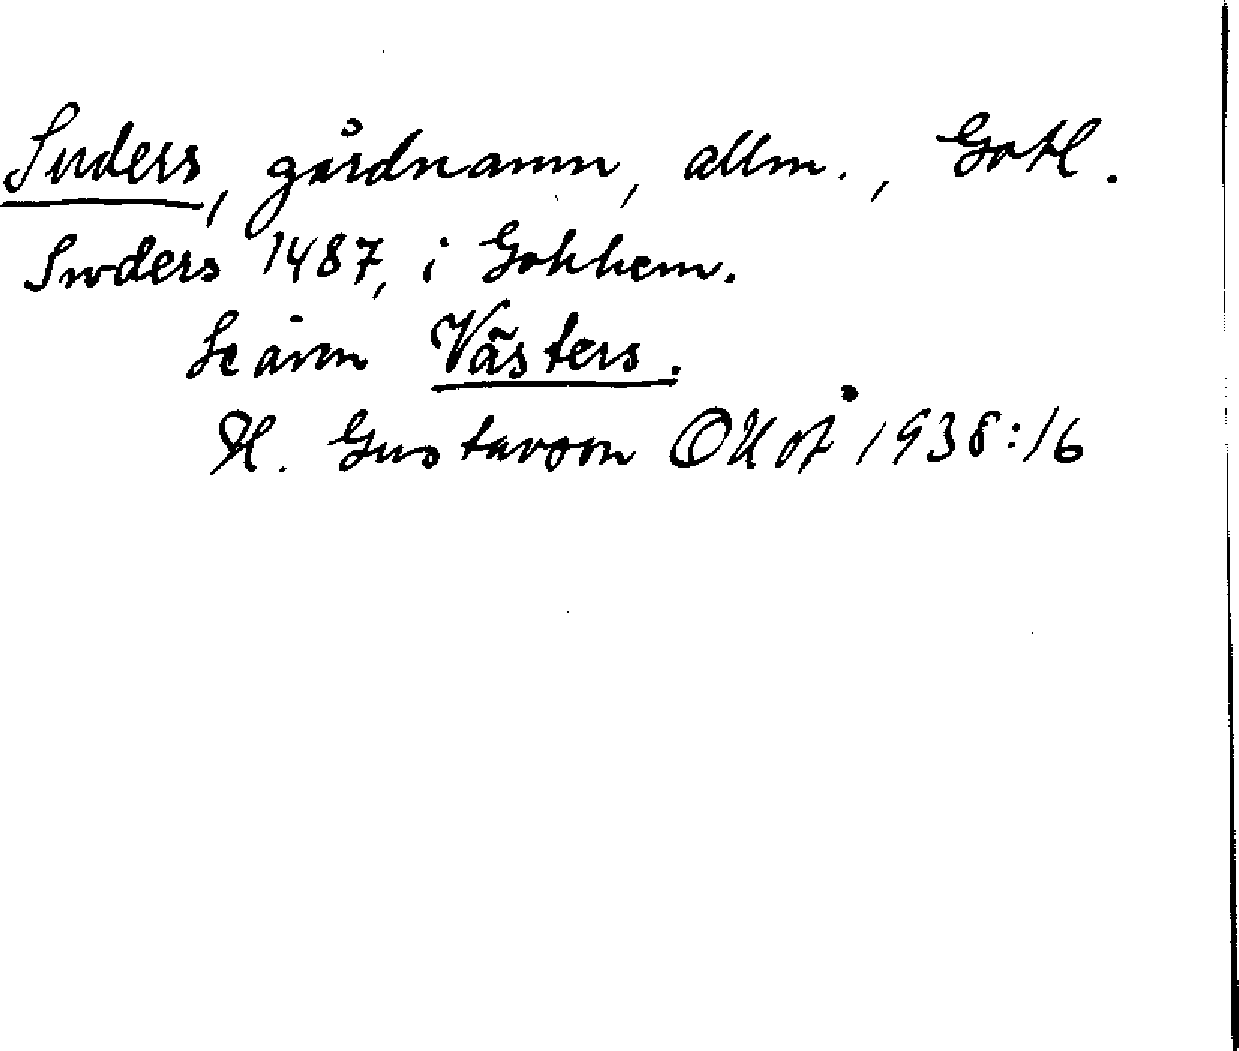 Suders, gårdnamn, allm., Gotl.
Swders 1487, i Gothem.
Se även Västers.
H. Gustavson OUoÅ 1938:16